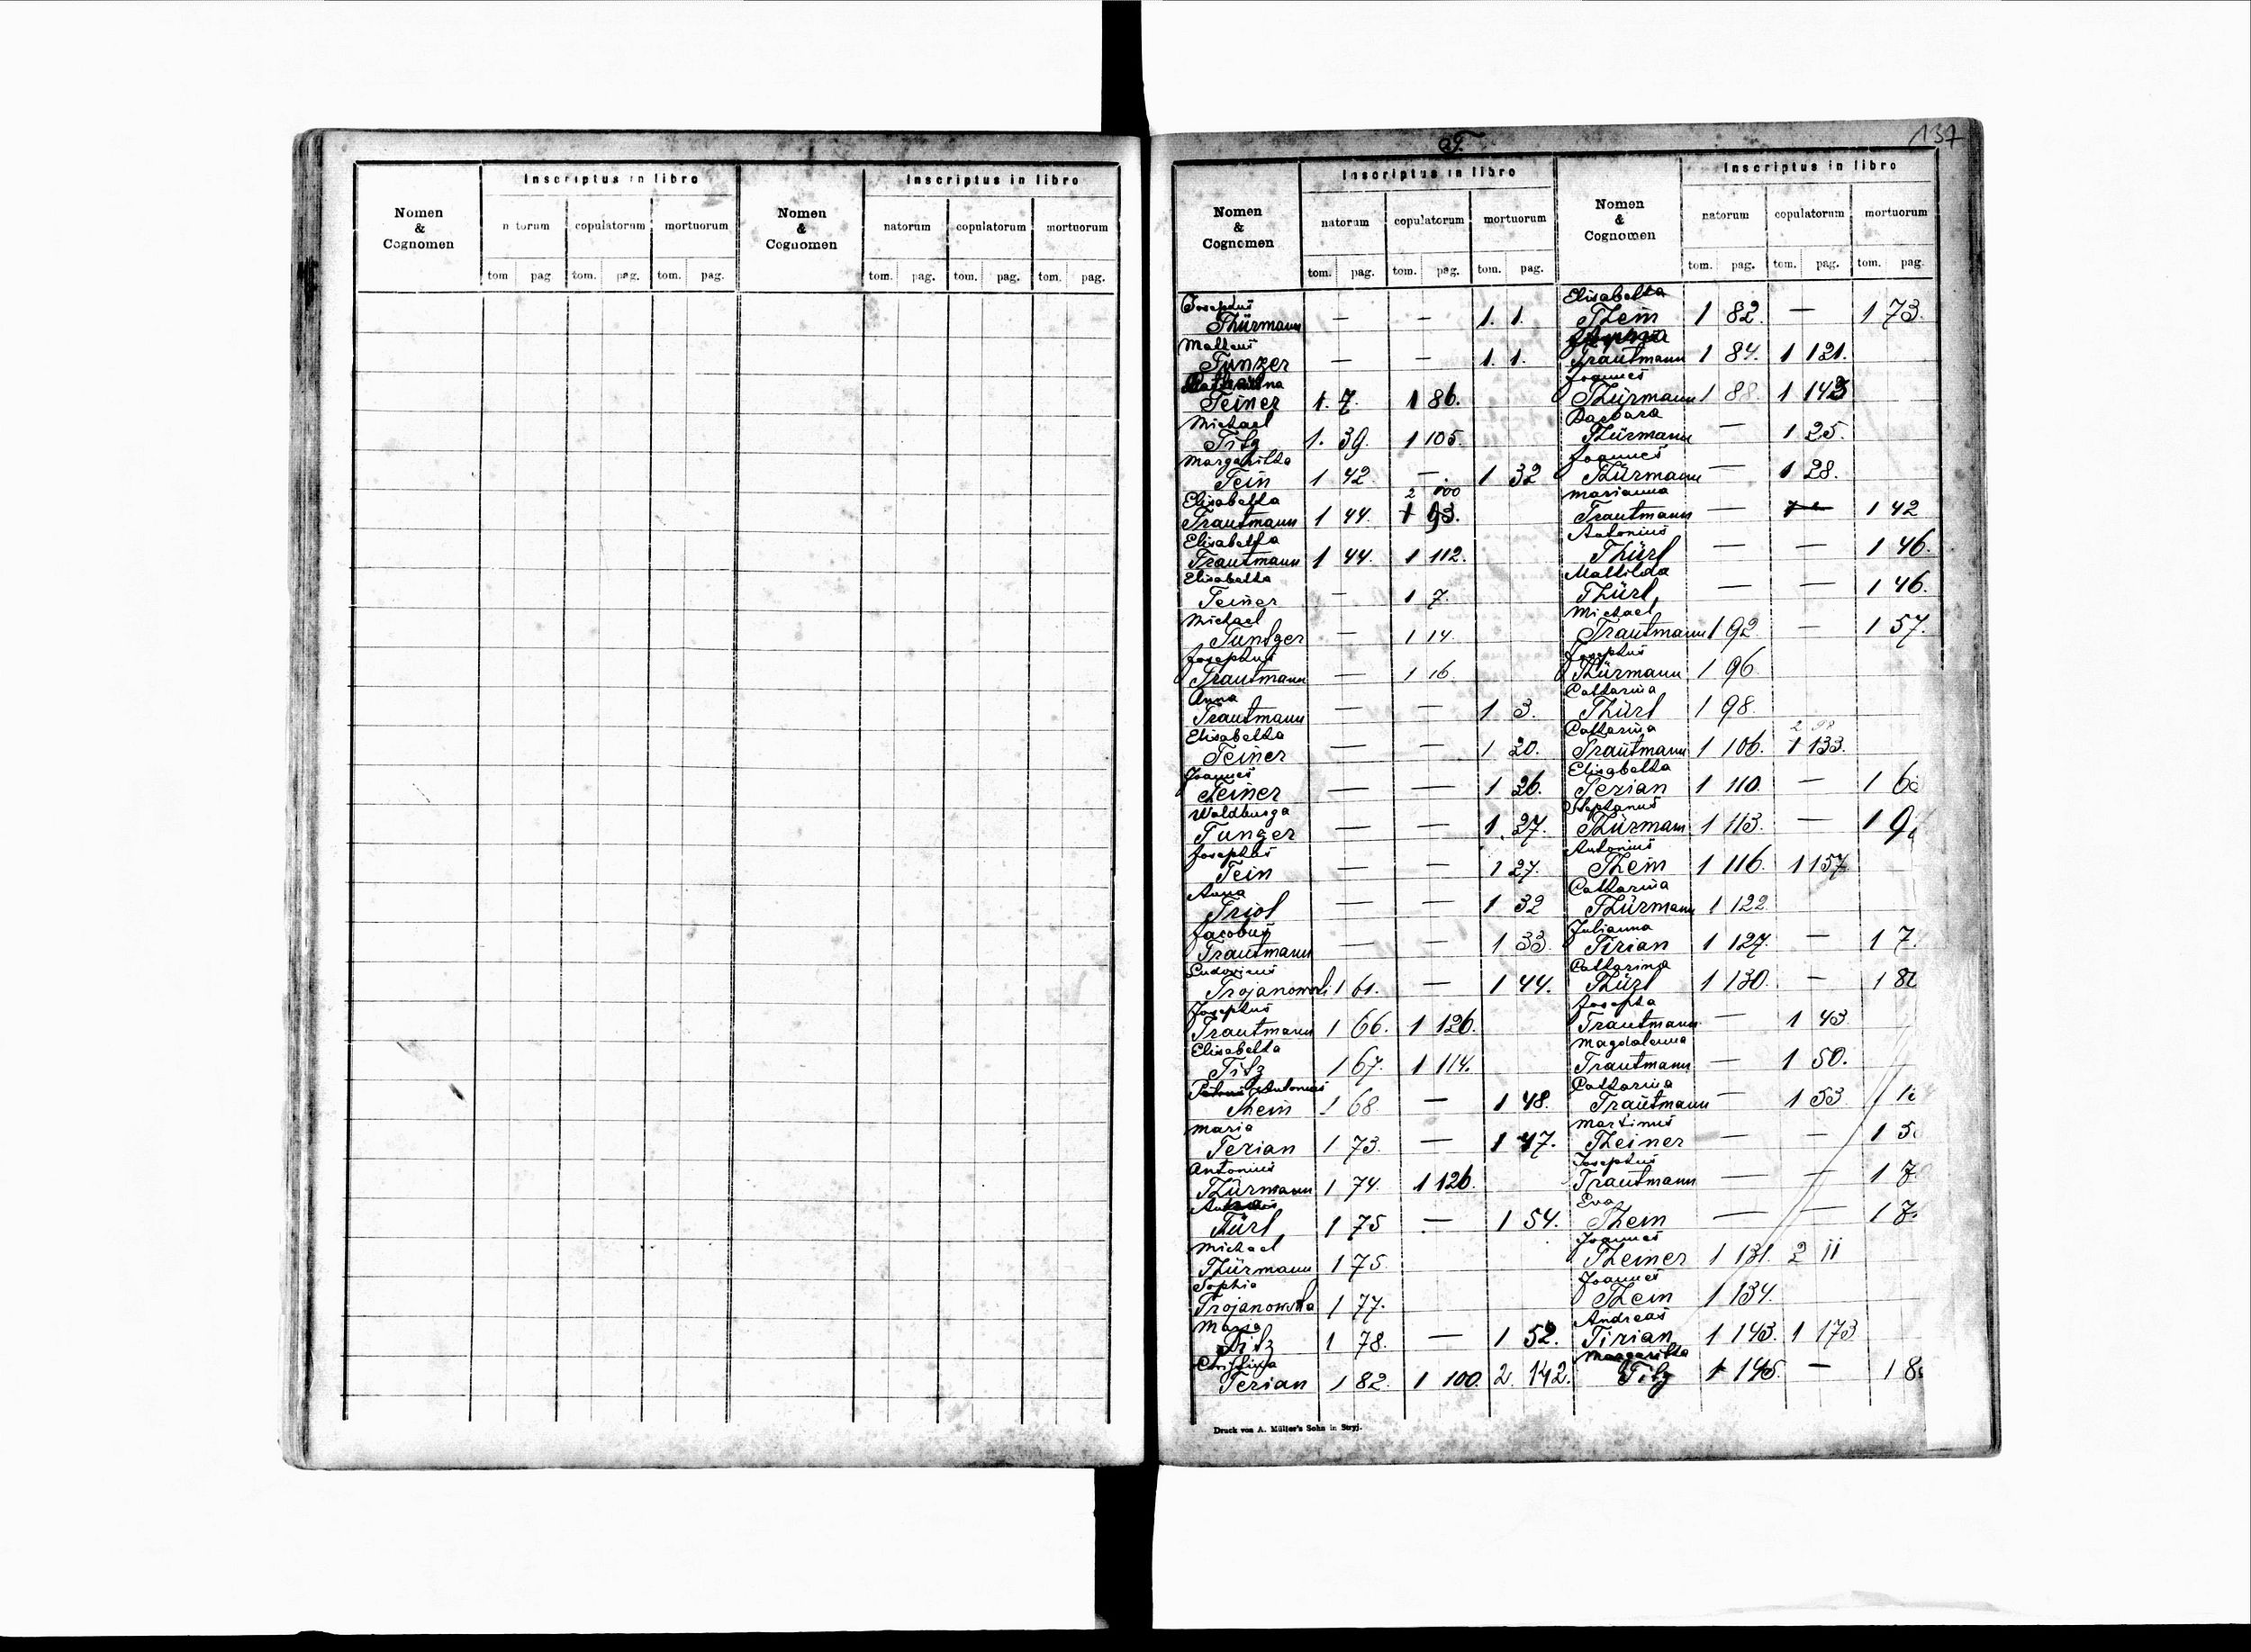 Inscriptus in libro Inscriptus in libro
Nomen & Cognomen natorum copulatorum mortuorum Nomen & Cognomen natorum copulatorum mortuorum
tom pag tom. pag. tom. pag. tom. pag. tom. pag. tom. pag.
T. 137
Inscriptus in libro Inscriptus in libro
Nomen & Cognomen natorum copulatorum mortuorum Nomen & Cognomen natorum copulatorum mortuorum
tom. pag. tom. pag. tom. pag. tom. pag. tom. pag. tom. pag.
Josephus
Thürmann — — 1. 1.
Matheus
Tunzer — — 1. 1.
Teiner 1. 7. 1 86.
Michael
Tilz 1. 39. 1 105.
Margaritha
Tein 1 42. — 1 32
Elisabetha 2 100
Trautmann 1 44. 1 93.
Elisabetha
Trautmann 1 44. 1 112.
Elisabetha
Teiner — 1 7.
Michael
Tuntzer — 1 14.
Josephus
Trautmann — 1 16.
Anna
Trautmann — — 1 3.
Elisabetha
Teiner — — 1 20.
Joannes
Teiner — — 1 26.
Waldburga
Tunzer — — 1. 27.
Josephus
Tein — — 1 27.
Anna
Triol — — 1 32
Jacobus
Trautmann — — 1 33.
Ludovicus
Trojanowski 1 61. — 1 44.
Josephus
Trautmann 1 66. 1 126.
Elisabetha
Tilz 1 67. 1 114.
Antonius
Thein 1 68 — 1 48.
Maria
Terian 1 73. — 1 47.
Antonius
Thürmann 1 74. 1 126.
Türl 1 75 — 1 54.
Michael
Thürmann 1 75.
Sophia
Trojanowska 1 77.
Maria
Tilz 1 78. — 1 52.
Christina
Terian 1 82. 1 100. 2. 142.
Elisabetha
Thein 1 82. — 1 73.
Trautmann 1 84. 1 121.
Joannes
Thürmann 1 88. 1 143
Barbara
Thürmann — 1 25.
Joannes
Thürmann — 1 28.
Marianna
Trautmann — 1 42
Antonius
Thürl — — 1 46.
Mathilda
Thürl — — 1 46.
Michael
Trautmann 1 92 — 1 57.
Josephus
Thürmann 1 96.
Catharina
Thürl 1 98.
Catharina 2 98
Trautmann 1 106. 1 133.
Elisabetha
Terian 1 110. — 1 6
Stephanus
Thürmann 1 113. — 1 9
Antonius
Thein 1 116. 1 157.
Catharina
Thürmann 1 122.
Julianna
Tirian 1 127. — 1 7.
Catharina
Thürl 1 130. — 1 8
Josepha
Trautmann — 1 43.
Magdalenna
Trautmann — 1 50.
Catharina
Trautmann — 1 53. 1
Martinus
Theiner — — 1 5
Josephus
Trautmann — — 1 7
Eva
Thein — — 1 7
Joannes
Theiner 1 131. 2 11
Joannes
Thein 1 134.
Andreas
Tirian 1 143. 1 173
Margaritha
Tilz 1 145. — 1 8
Druck von A. Müller's Sohn in Stryj.